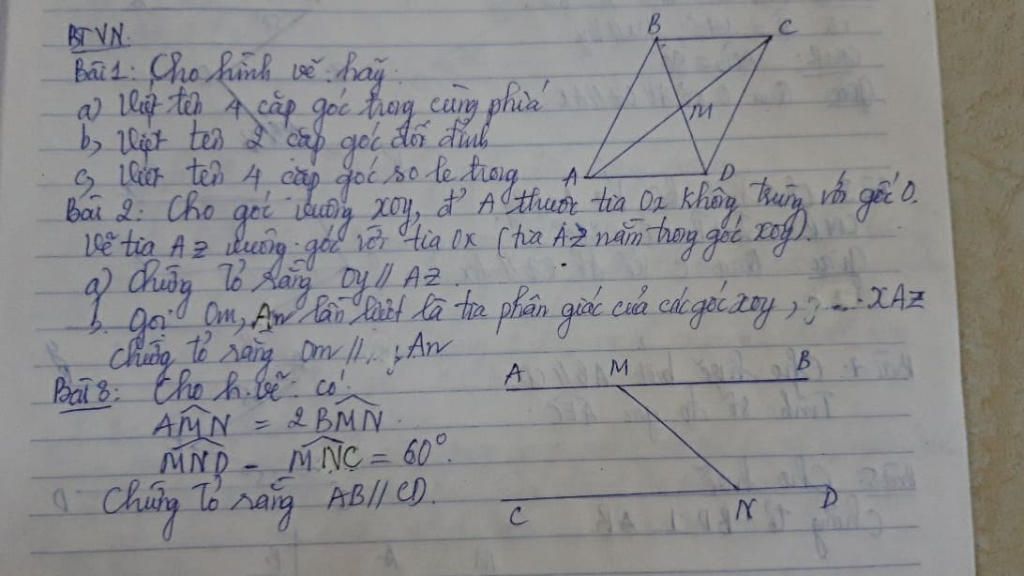 BTVN.
Bài 1: Cho hình vẽ hãy
B C
a) Viết tên 4 cặp góc trong cùng phía
M
b, Viết tên 2 cặp góc đối đỉnh
c, Viết tên 4 cặp góc so le trong
A D
Bài 2: Cho góc vuông xoy, đ' A thuộc tia Ox không trùng với gốc O.
Vẽ tia Az vuông góc với tia Ox (tia Az nằm trong góc xoy).
a) Chứng tỏ rằng Oy // Az.
b. Gọi Om, An lần lượt là tia phân giác của các góc xoy, ; xAz
Chứng tỏ rằng Om // An
Bài 3: Cho h.vẽ: có:
A M B
AMN = 2 BMN.
MND - MNC = 60°.
Chứng tỏ rằng AB // CD.
C N D